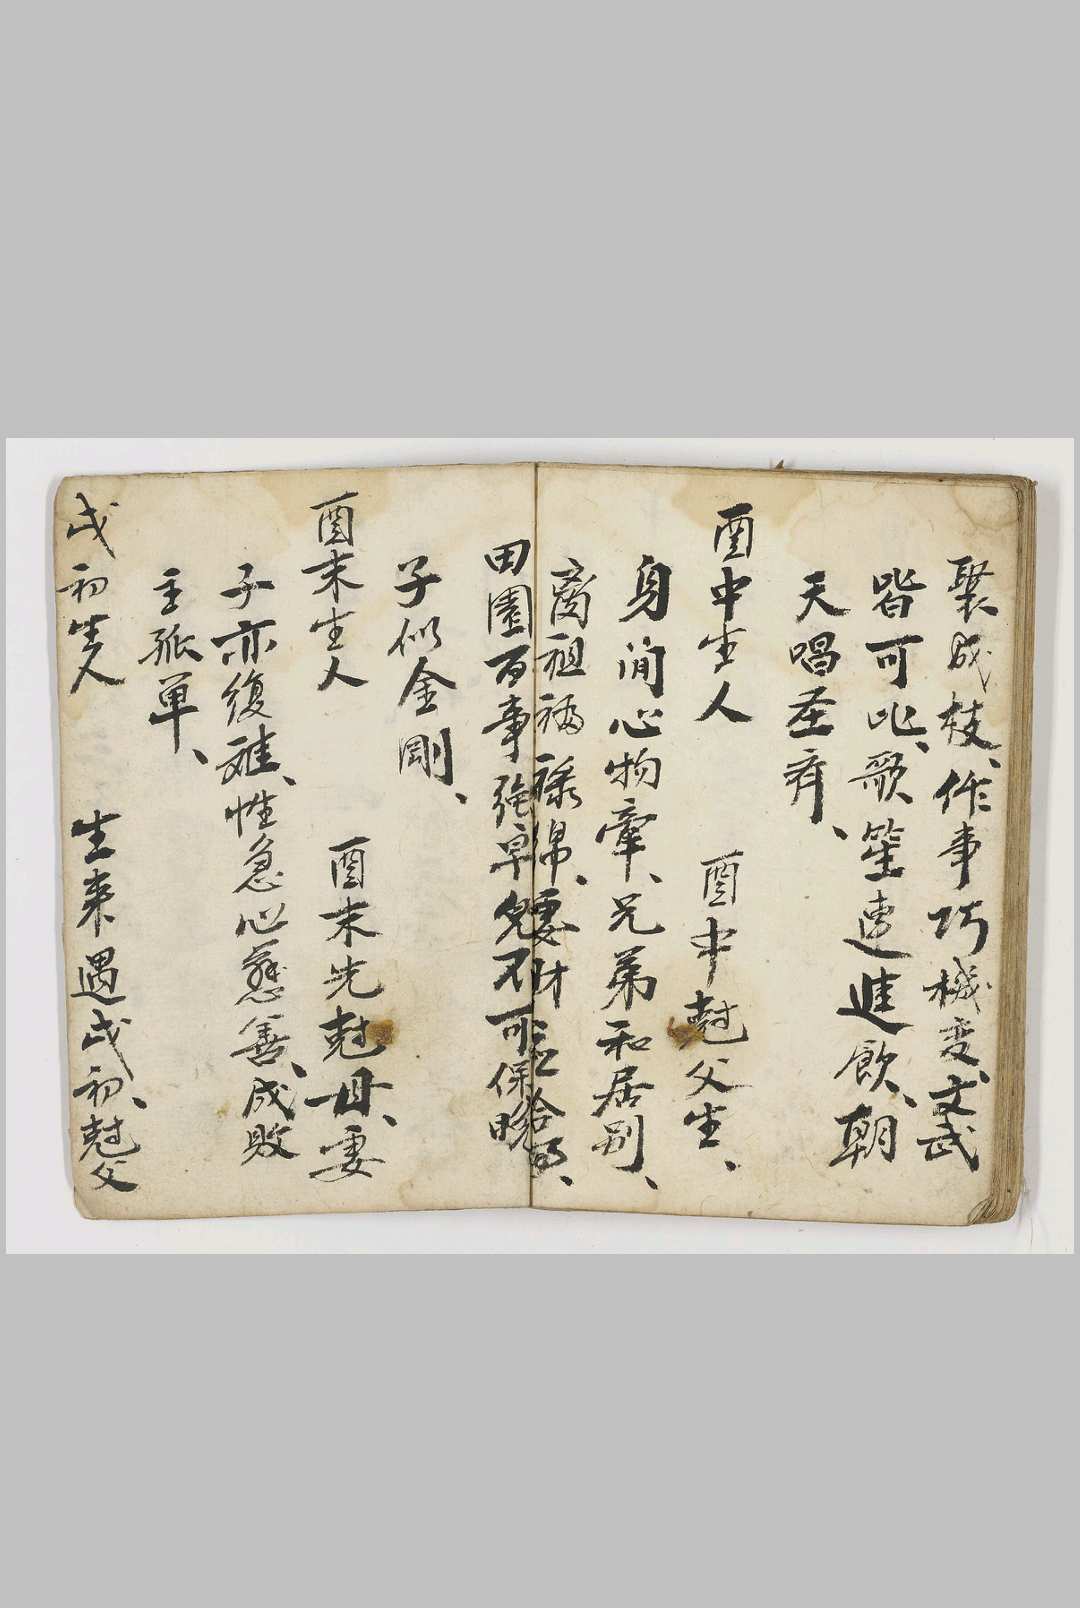 聚成枝、作事巧機变、文武
皆可比、歌笙連進飲、朝
天唱圣齊、
酉中生人　酉中尅父生、
身閑心物牽、兄弟和居别、
离祖福祿綿、妻財
田園百事強卑兒不可保
子似金剛、
酉末生人　酉末先尅母、妻
子亦復难、性急心慈善、成敗
主孤单、
戌初生人　生来遇戌初、尅父